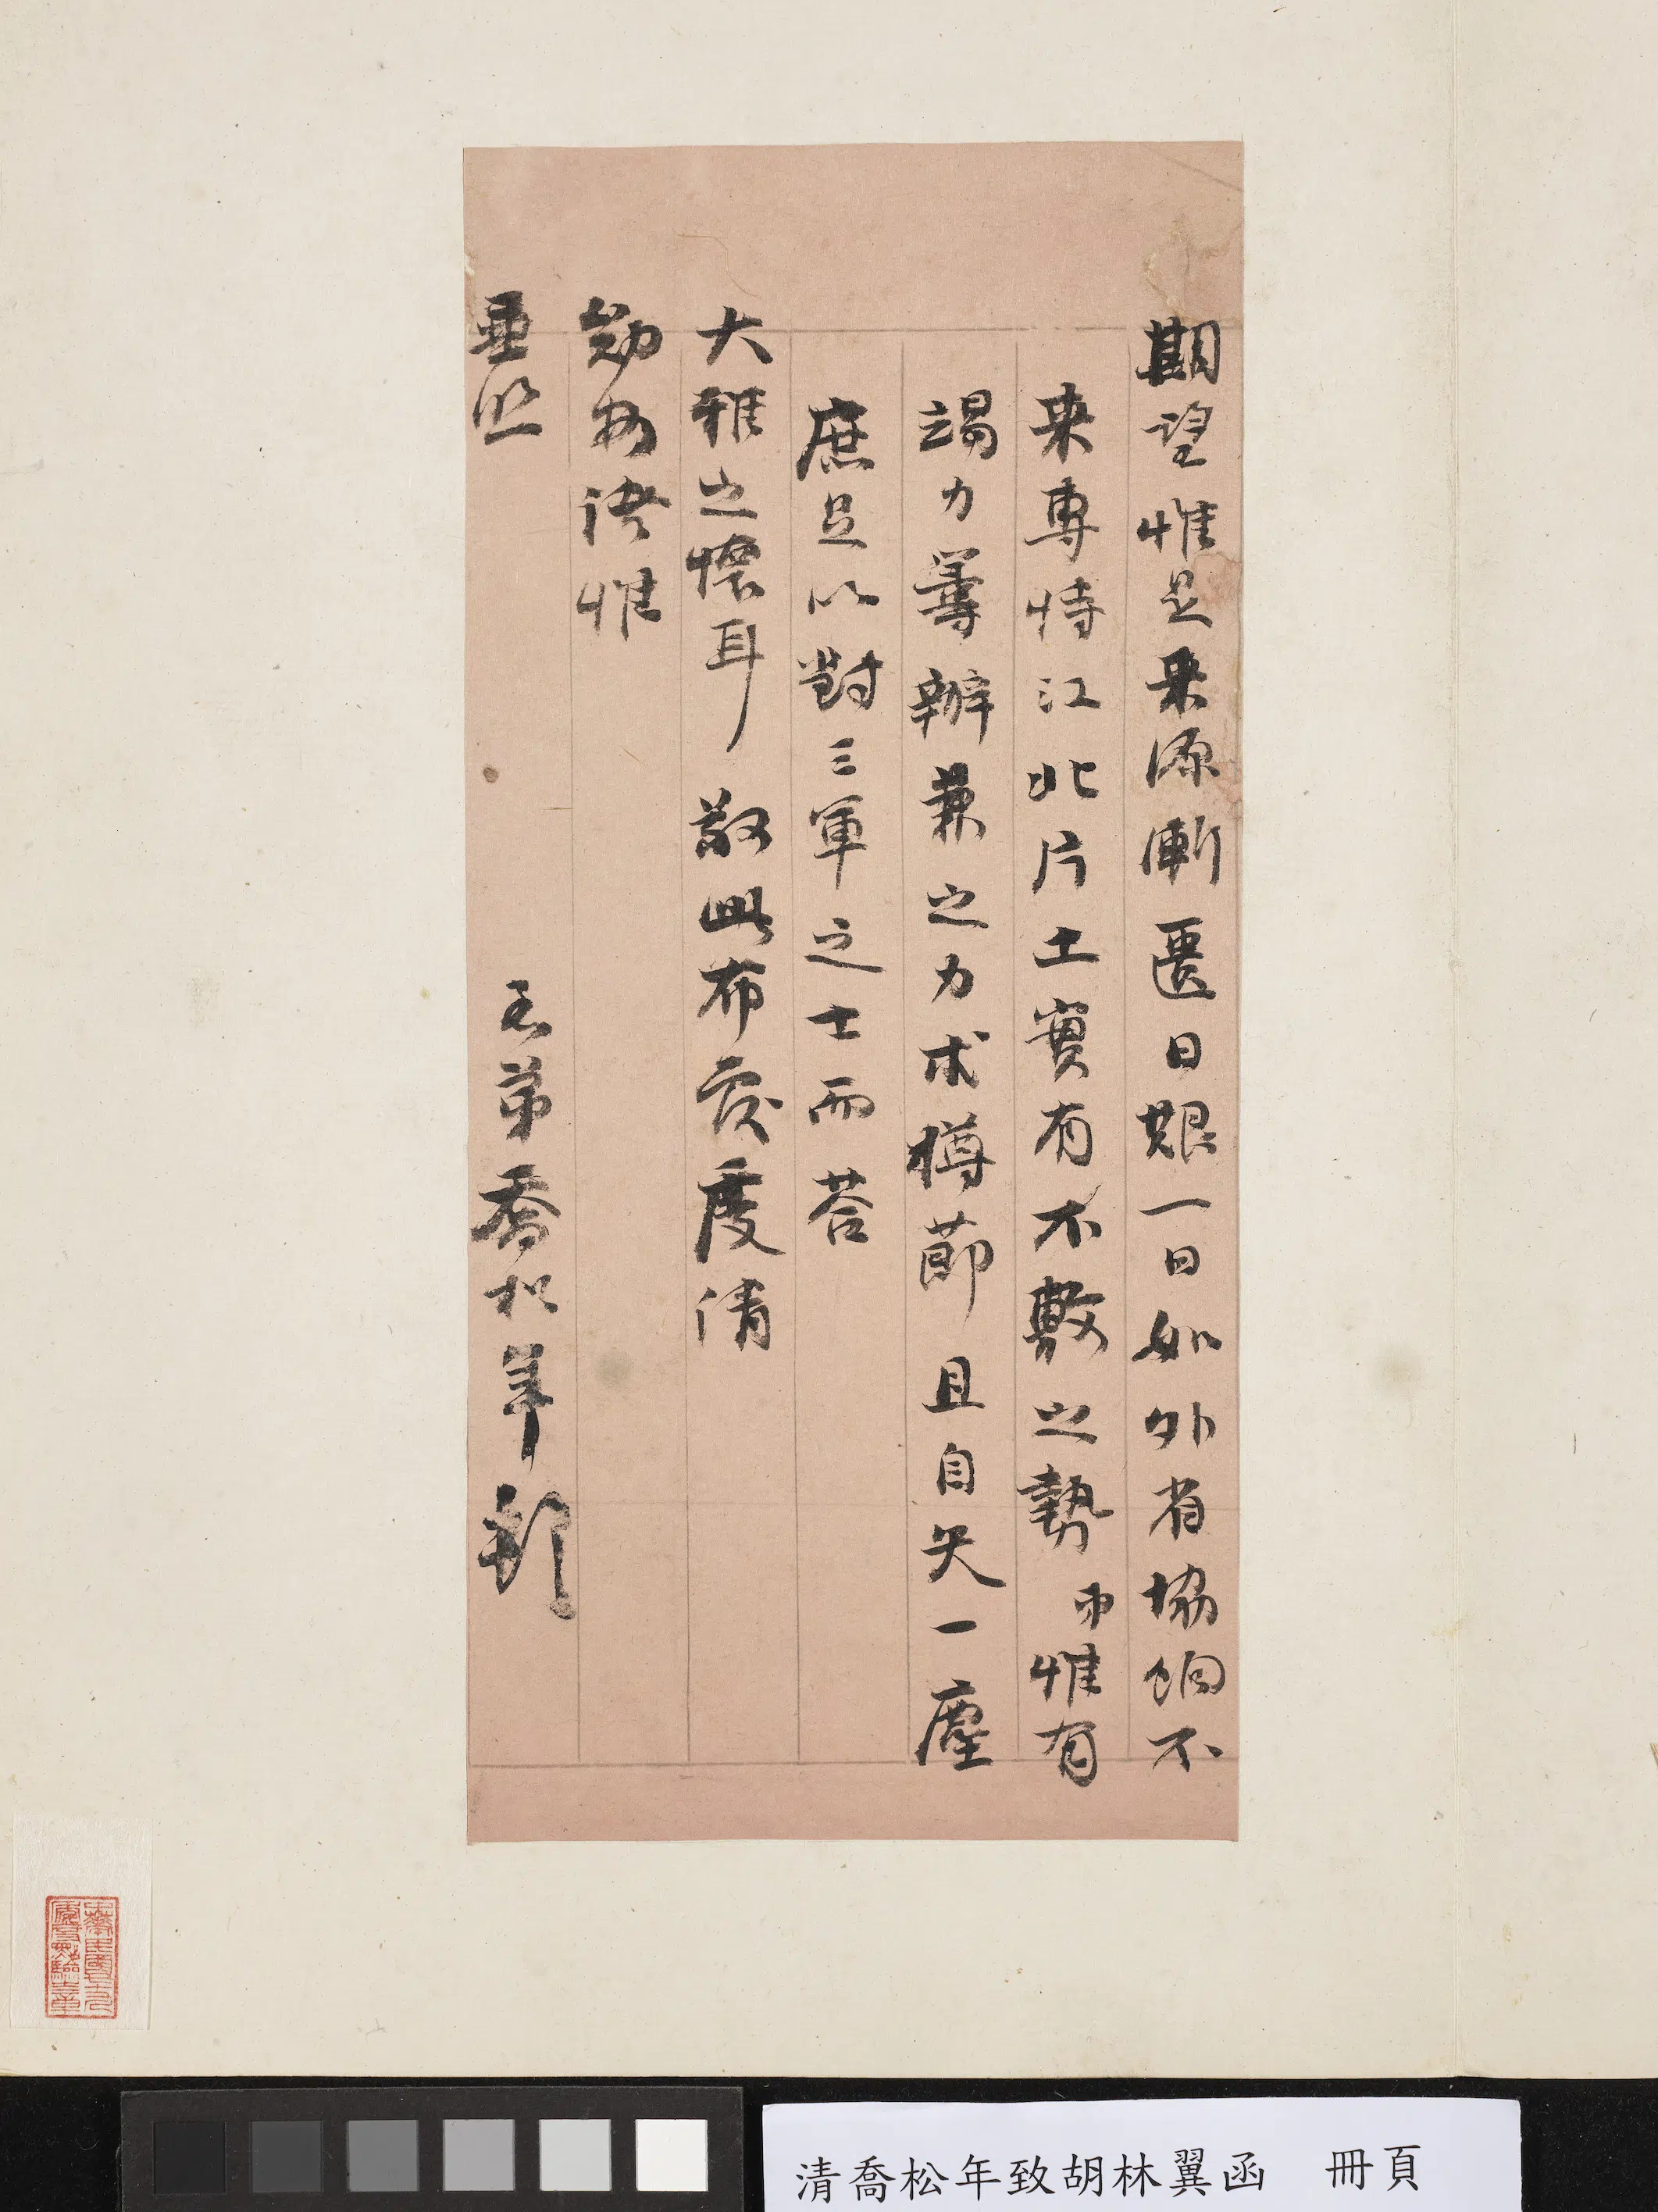 期望惟是來源漸匱日艱一日如外省協餉不
来專恃江北片土實有不敷之勢弟惟有
竭力籌辦兼之力求撙節且自矢一塵
庶足以對三軍之士而荅
大雅之懷耳敬此布覆虔請
勛安諸惟
垂照
愚弟喬松年頓
清喬松年致胡林翼函 冊頁